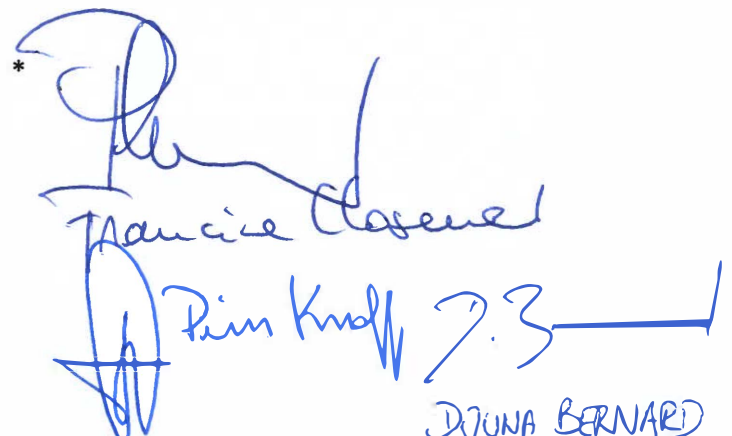 *
Francine Closener
Pim Knaff D.B
DJUNA BERNARD